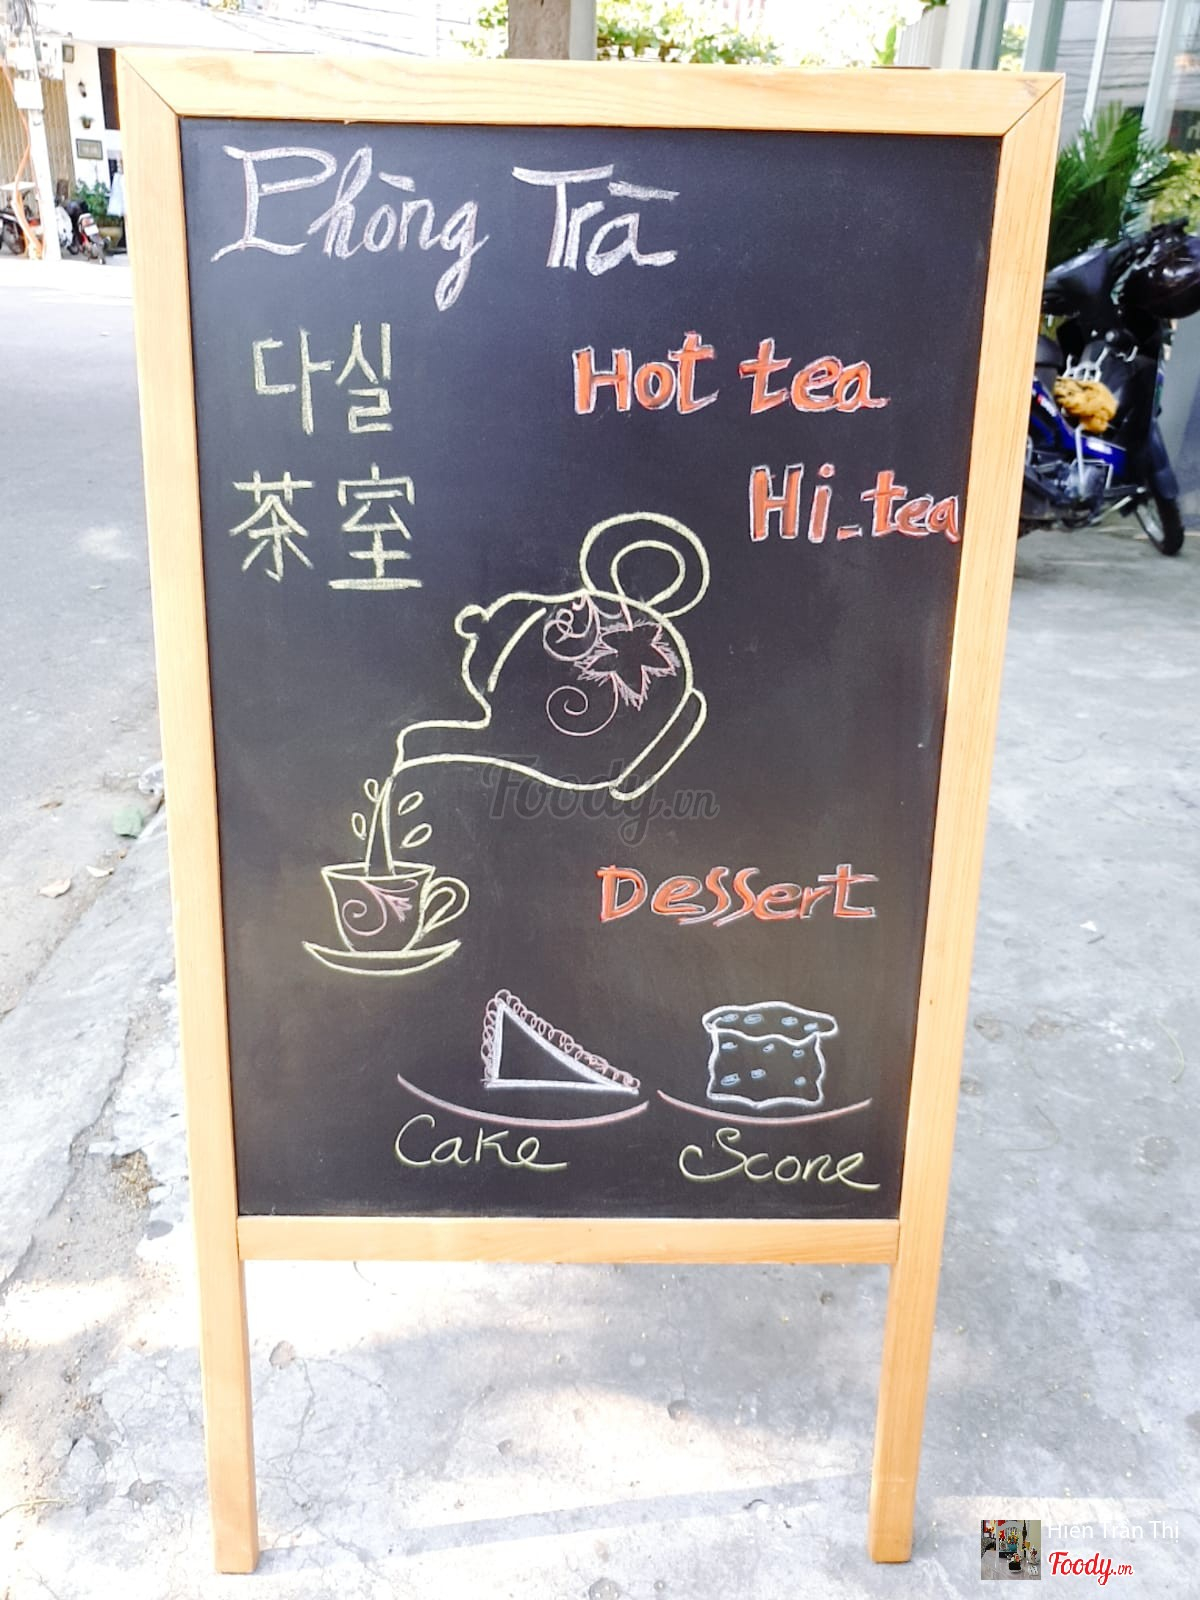 Phòng Trà
다실
Hot tea
茶室
Hi-tea
Foody.vn
Dessert
Cake
Scone
Hien Trần Thi
Foody.vn